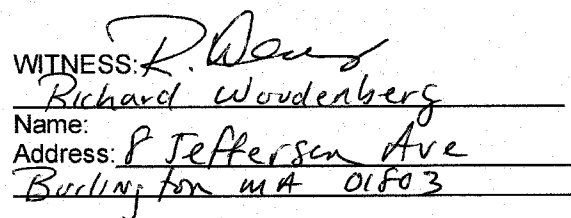 WITNESS: R.
Richard Woudenberg
Name:
Address: 8 Jefferson Ave
Burlington MA 01803